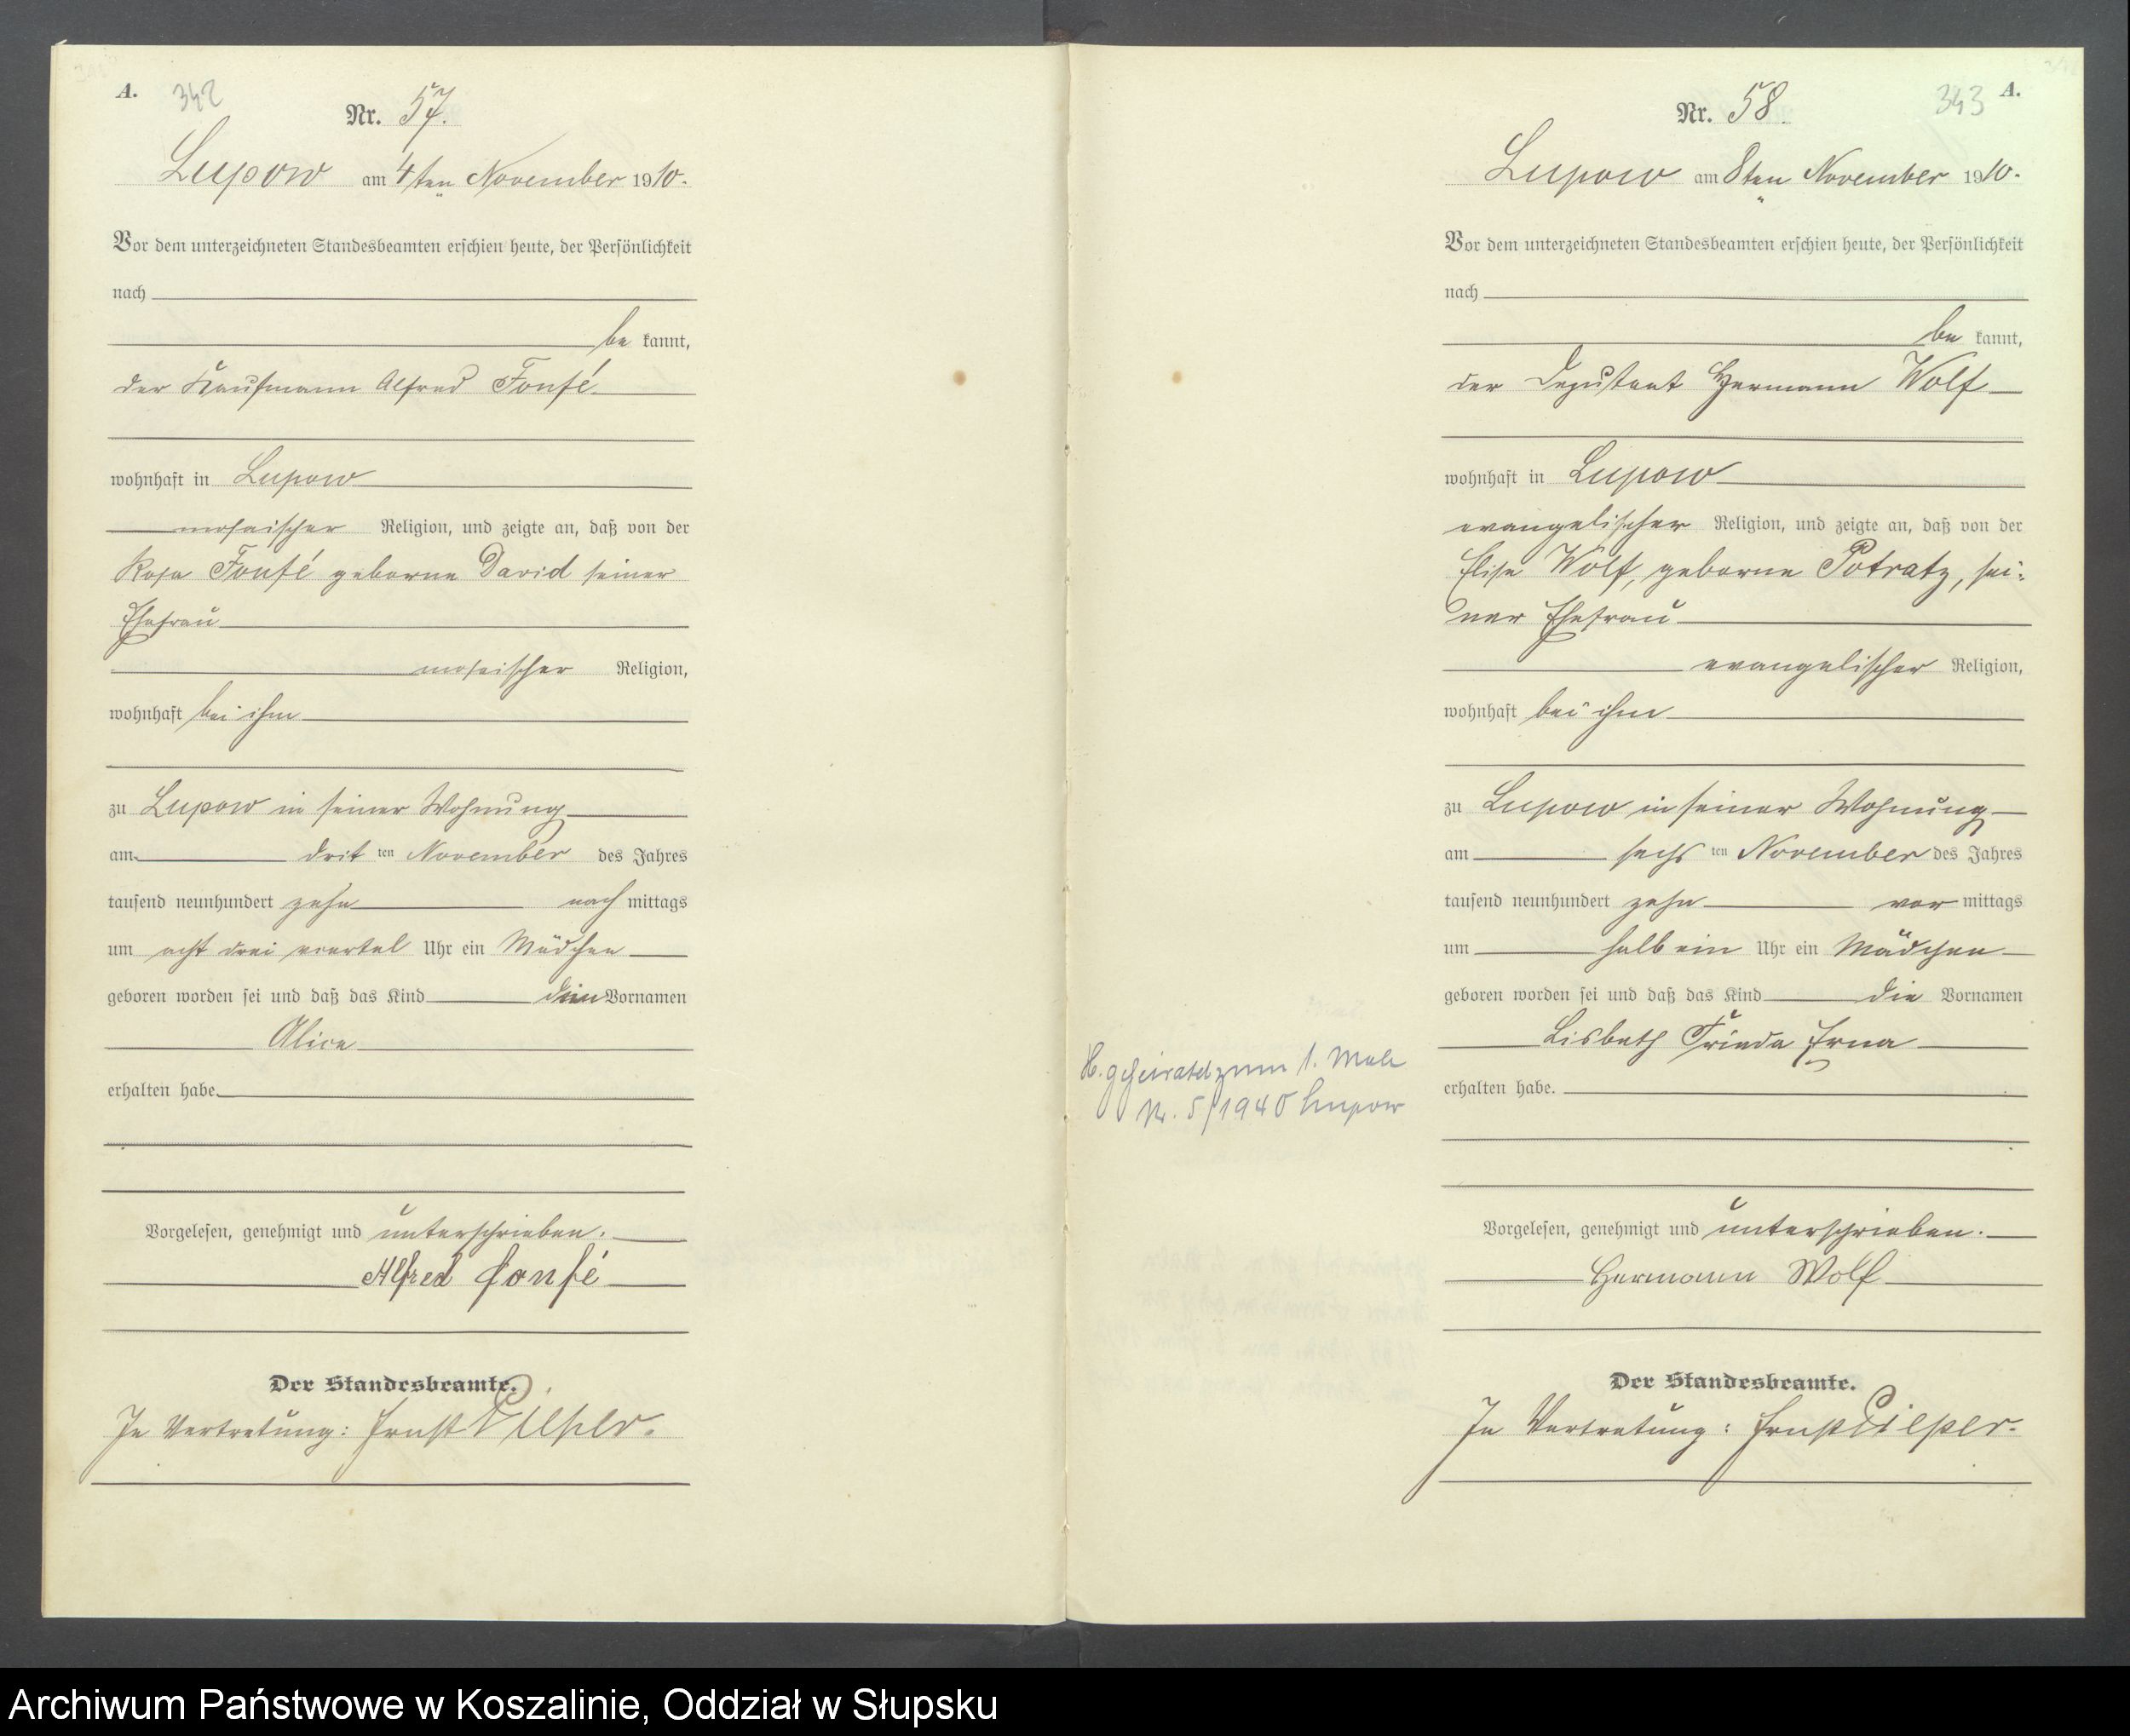 A.
342
Nr. 57.
Lupow am 4ten November 1910.
Vor dem unterzeichneten Standesbeamten erschien heute, der Persönlichkeit
nach
be kannt,
der Kaufmann Alfred Fonfé
wohnhaft in Lupow
mosaischer Religion, und zeigte an, daß von der
Rosa Fonfé geborne David seiner
Ehefrau
mosaischer Religion,
wohnhaft bei ihm
zu Lupow in seiner Wohnung
am dritten November des Jahres
tausend neunhundert zehn nach mittags
um acht drei viertel Uhr ein Mädchen
geboren worden sei und daß das Kind den Vornamen
Alice
erhalten habe.
Vorgelesen, genehmigt und unterschrieben.
Alfred Fonfé
Der Standesbeamte.
In Vertretung: Ernst Pieper.
343
A.
Nr. 58.
Lupow am 8ten November 1910.
Vor dem unterzeichneten Standesbeamten erschien heute, der Persönlichkeit
nach
be kannt,
der Deputant Hermann Wolf
wohnhaft in Lupow
evangelischer Religion, und zeigte an, daß von der
Elise Wolf, geborne Potratz, sei-
ner Ehefrau
evangelischer Religion,
wohnhaft bei ihm
zu Lupow in seiner Wohnung
am sechsten November des Jahres
tausend neunhundert zehn vor mittags
um halb ein Uhr ein Mädchen
geboren worden sei und daß das Kind die Vornamen
Lisbeth Frieda Erna
erhalten habe.
H. geheiratet zum 1. Male
Nr. 5/1940 Lupow
Vorgelesen, genehmigt und unterschrieben.
Hermann Wolf
Der Standesbeamte.
In Vertretung: Ernst Pieper.
Archiwum Państwowe w Koszalinie, Oddział w Słupsku